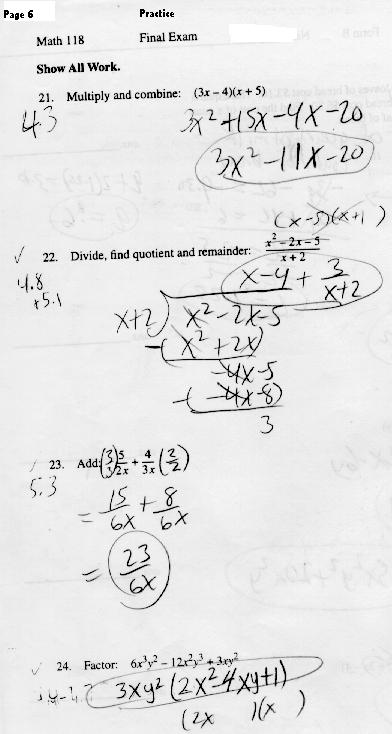 Page 6 Practice
Math 118 Final Exam
Show All Work.
21. Multiply and combine: (3x – 4)(x + 5)
4.3 3x² + 15x – 4x – 20
3x² – 11x – 20
(x – 5)(x + 1 )
✓ 22. Divide, find quotient and remainder: x² – 2x – 5 / x + 2
4.8 x – 4 + 3/x+2
+5.1
x+2 ) x² – 2x – 5
–( x² + 2x)
–4x – 5
–( –4x – 8)
3
23. Add: (3/3) 5/2x + 4/3x (2/2)
5.3 = 15/6x + 8/6x
= 23/6x
✓ 24. Factor: 6x³y² – 12x²y³ + 3xy²
3xy² (2x² – 4xy + 1)
(2x )(x )